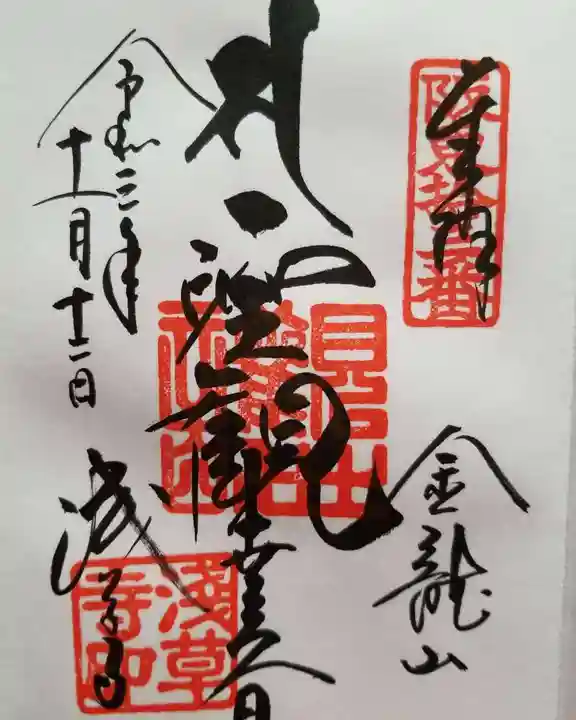 奉拝
坂東拾三番
金龍山
聖観世音
浅草寺
浅草寺印
令和三年
十一月十二日